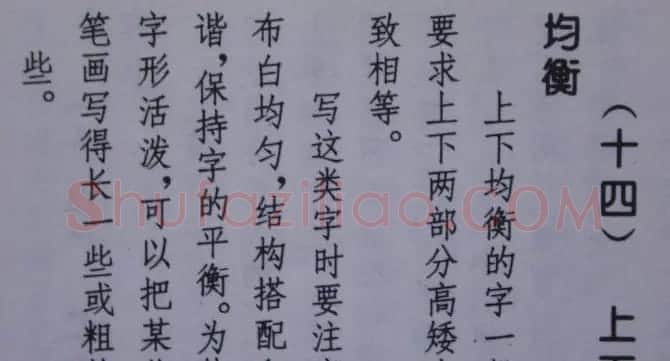 （十四） 上
均衡
上下均衡的字一
要求上下两部分高矮
致相等。
写这类字时要注
布白均匀，结构搭配
谐，保持字的平衡。为
字形活泼，可以把某
笔画写得长一些或粗
些。
Shufaziliao.COM